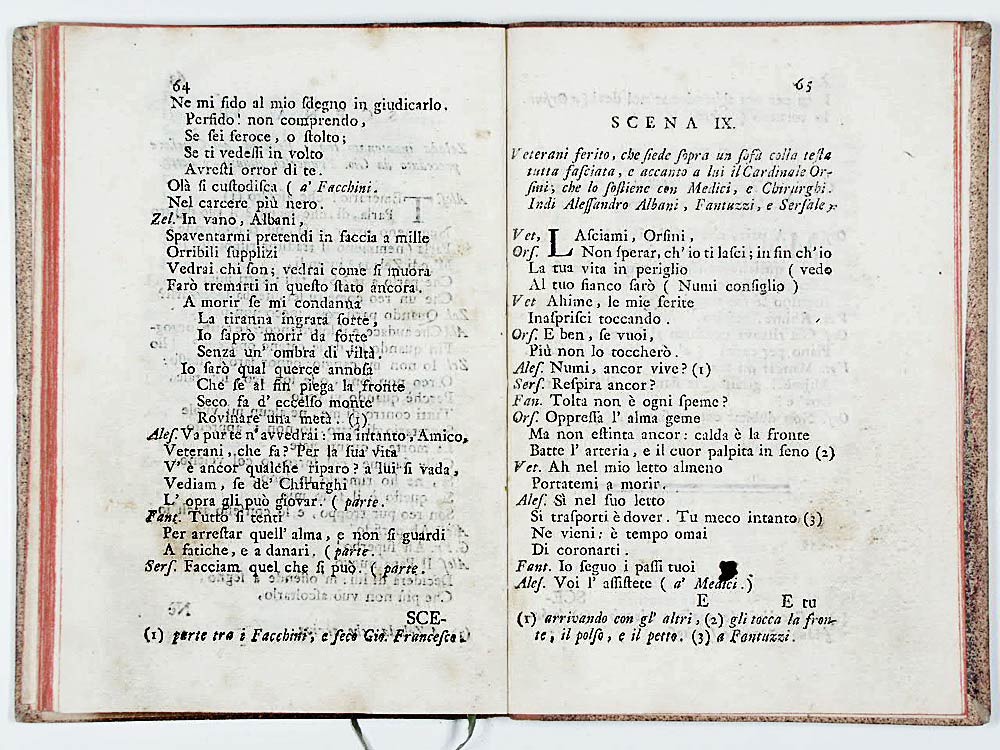 64
Ne mi ſido al mio ſdegno in giudicarlo.
Perfido! non comprendo,
Se ſei feroce, o ſtolto;
Se ti vedeſſi in volto
Avreſti orror di te.
Olà ſi cuſtodiſca ( a' Facchini.
Nel carcere più nero.
Zel. In vano, Albani,
Spaventarmi pretendi in faccia a mille
Orribili ſupplizi
Vedrai chi ſon; vedrai come ſi muora
Farò tremarti in queſto ſtato ancora.
A morir ſe mi condanna
La tiranna ingrata ſorte,
Io ſaprò morir da forte
Senza un' ombra di viltà.
Io ſarò qual querce annoſa
Che ſe al fin piega la fronte
Seco fa d' eccelſo monte
Rovinare una metà. (1)
Aleſ. Va pur te n' avvedrai: ma intanto, Amico,
Veterani, che fa? Per la ſua vita
V' è ancor qualche riparo? a lui ſi vada,
Vediam, ſe de' Chirurghi
L' opra gli può giovar. ( parte.
Fant. Tutto ſi tenti
Per arreſtar quell' alma, e non ſi guardi
A fatiche, e a danari. ( parte.
Serſ. Facciam quel che ſi può. ( parte.
SCE-
(1) parte tra i Facchini, e ſeco Gio. Franceſco.
65
SCENA IX.
Veterani ferito, che ſiede ſopra un ſofà colla teſta
tutta faſciata, e accanto a lui il Cardinale Or-
ſini, che lo ſoſtiene con Medici, e Chirurghi.
Indi Aleſſandro Albani, Fantuzzi, e Serſale.
Vet, LAſciami, Orſini,
Orſ. Non ſperar, ch' io ti laſci; in fin ch' io
La tua vita in periglio ( vedo
Al tuo fianco ſarò ( Numi conſiglio )
Vet Ahime, le mie ferite
Inaſpriſci toccando.
Orſ. E ben, ſe vuoi,
Più non lo toccherò.
Aleſ. Numi, ancor vive? (1)
Serſ. Reſpira ancor?
Fan. Tolta non è ogni ſpeme?
Orſ. Oppreſſa l' alma geme
Ma non eſtinta ancor: calda è la fronte
Batte l' arteria, e il cuor palpita in ſeno (2)
Vet. Ah nel mio letto almeno
Portatemi a morir.
Aleſ. Sì nel ſuo letto
Si traſporti è dover. Tu meco intanto (3)
Ne vieni: è tempo omai
Di coronarti.
Fant. Io ſeguo i paſſi tuoi
Aleſ. Voi l' aſſiſtete ( a' Medici.)
E E tu
(1) arrivando con gl' altri, (2) gli tocca la fron-
te, il polſo, e il petto. (3) a Fantuzzi.